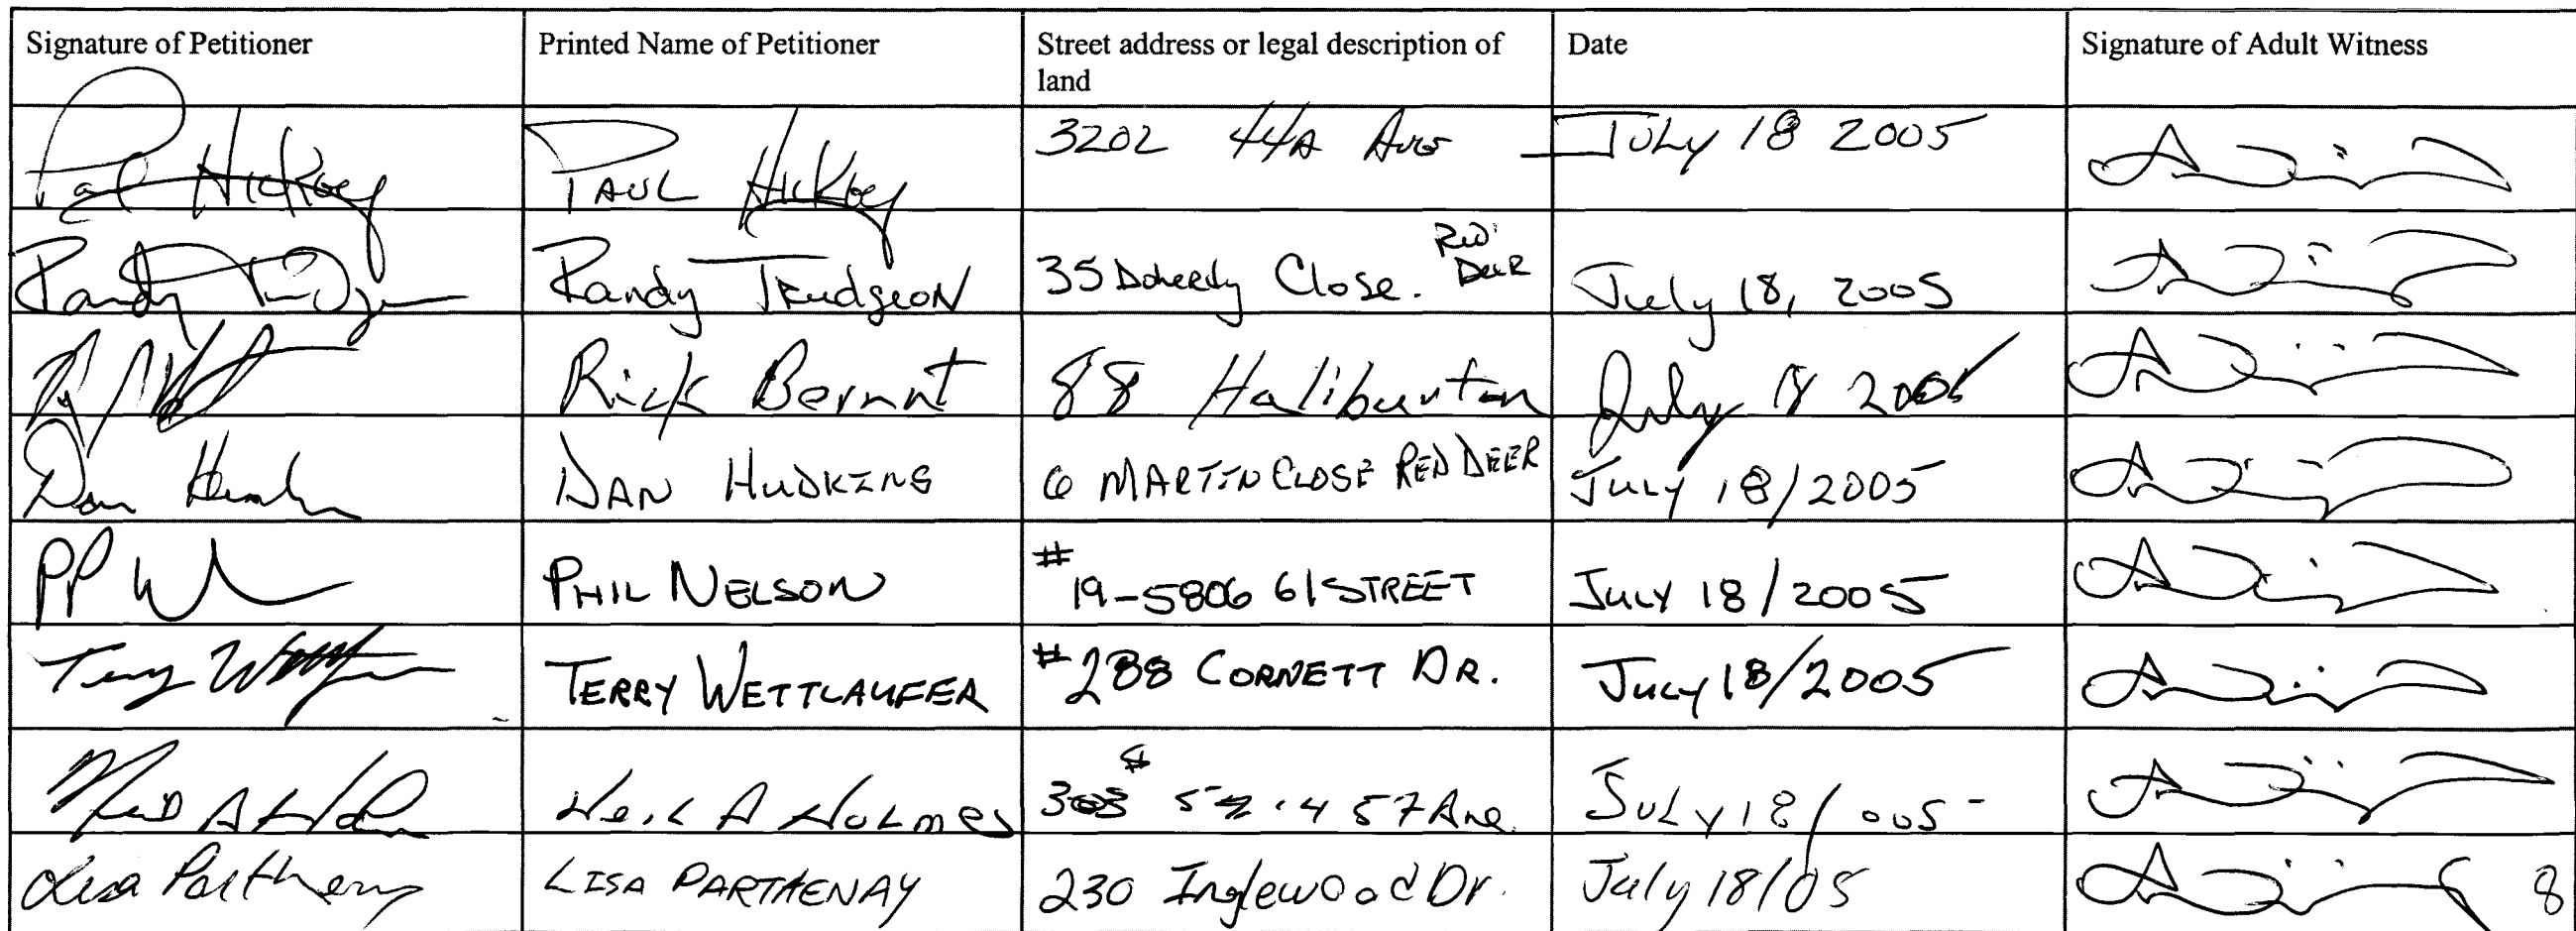 Signature of Petitioner Printed Name of Petitioner Street address or legal description of land Date Signature of Adult Witness
Paul Hickey PAUL Hickey 3202 44A Ave JULY 18 2005
Randy Trudgeon Randy TRudgeoN 35 Doheedy Close. Red Deer July 18, 2005
Rick Bernnt 88 Haliburton July 18 2005
Dan DAN HUDKINS 6 MARTIN CLOSE RED DEER JULY 18/2005
PHIL NELSON #19-5806 61 STREET JULY 18/2005
Terry TERRY WETTLAUFER #288 CORNETT DR. JULY 18/2005
Neil A HoLmes 57 Ave JULY 18/ 005
Lisa Parthenay LISA PARTHENAY 230 Inglewood Dr. July 18/05 8